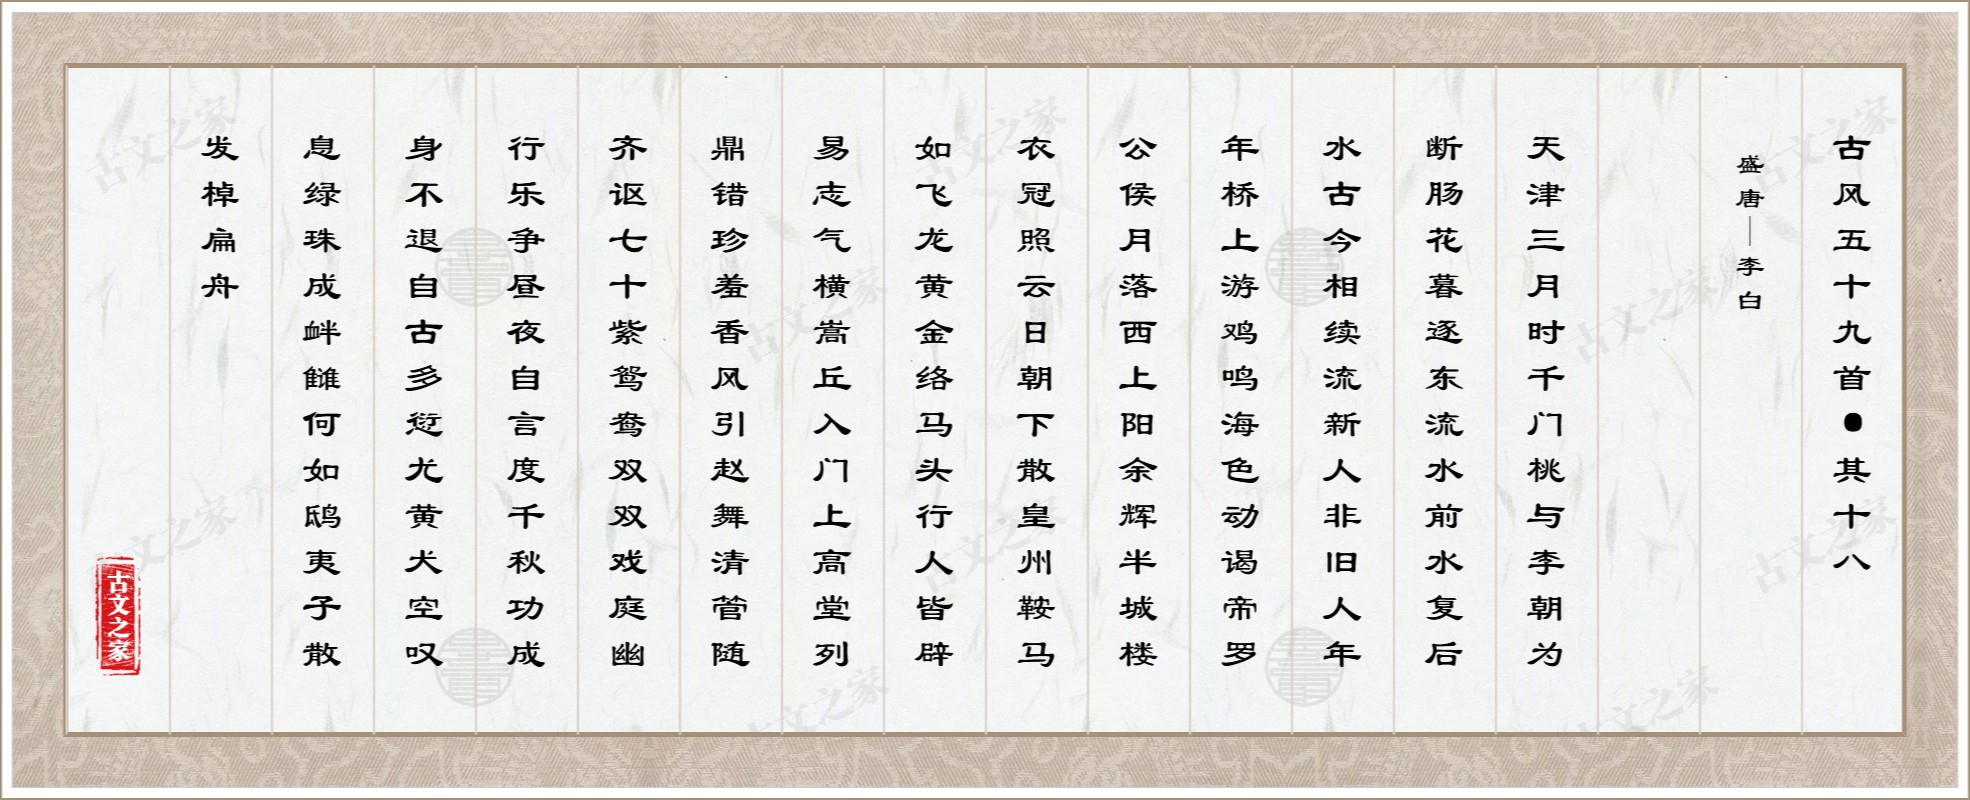 古风五十九首●其十八
盛唐—李白
天津三月时千门桃与李朝为
断肠花暮逐东流水前水复后
水古今相续流新人非旧人年
年桥上游鸡鸣海色动谒帝罗
公侯月落西上阳余辉半城楼
衣冠照云日朝下散皇州鞍马
如飞龙黄金络马头行人皆辟
易志气横嵩丘入门上高堂列
鼎错珍羞香风引赵舞清管随
齐讴七十紫鸳鸯双双戏庭幽
行乐争昼夜自言度千秋功成
身不退自古多愆尤黄犬空叹
息绿珠成衅雠何如鸱夷子散
发棹扁舟
古文之家